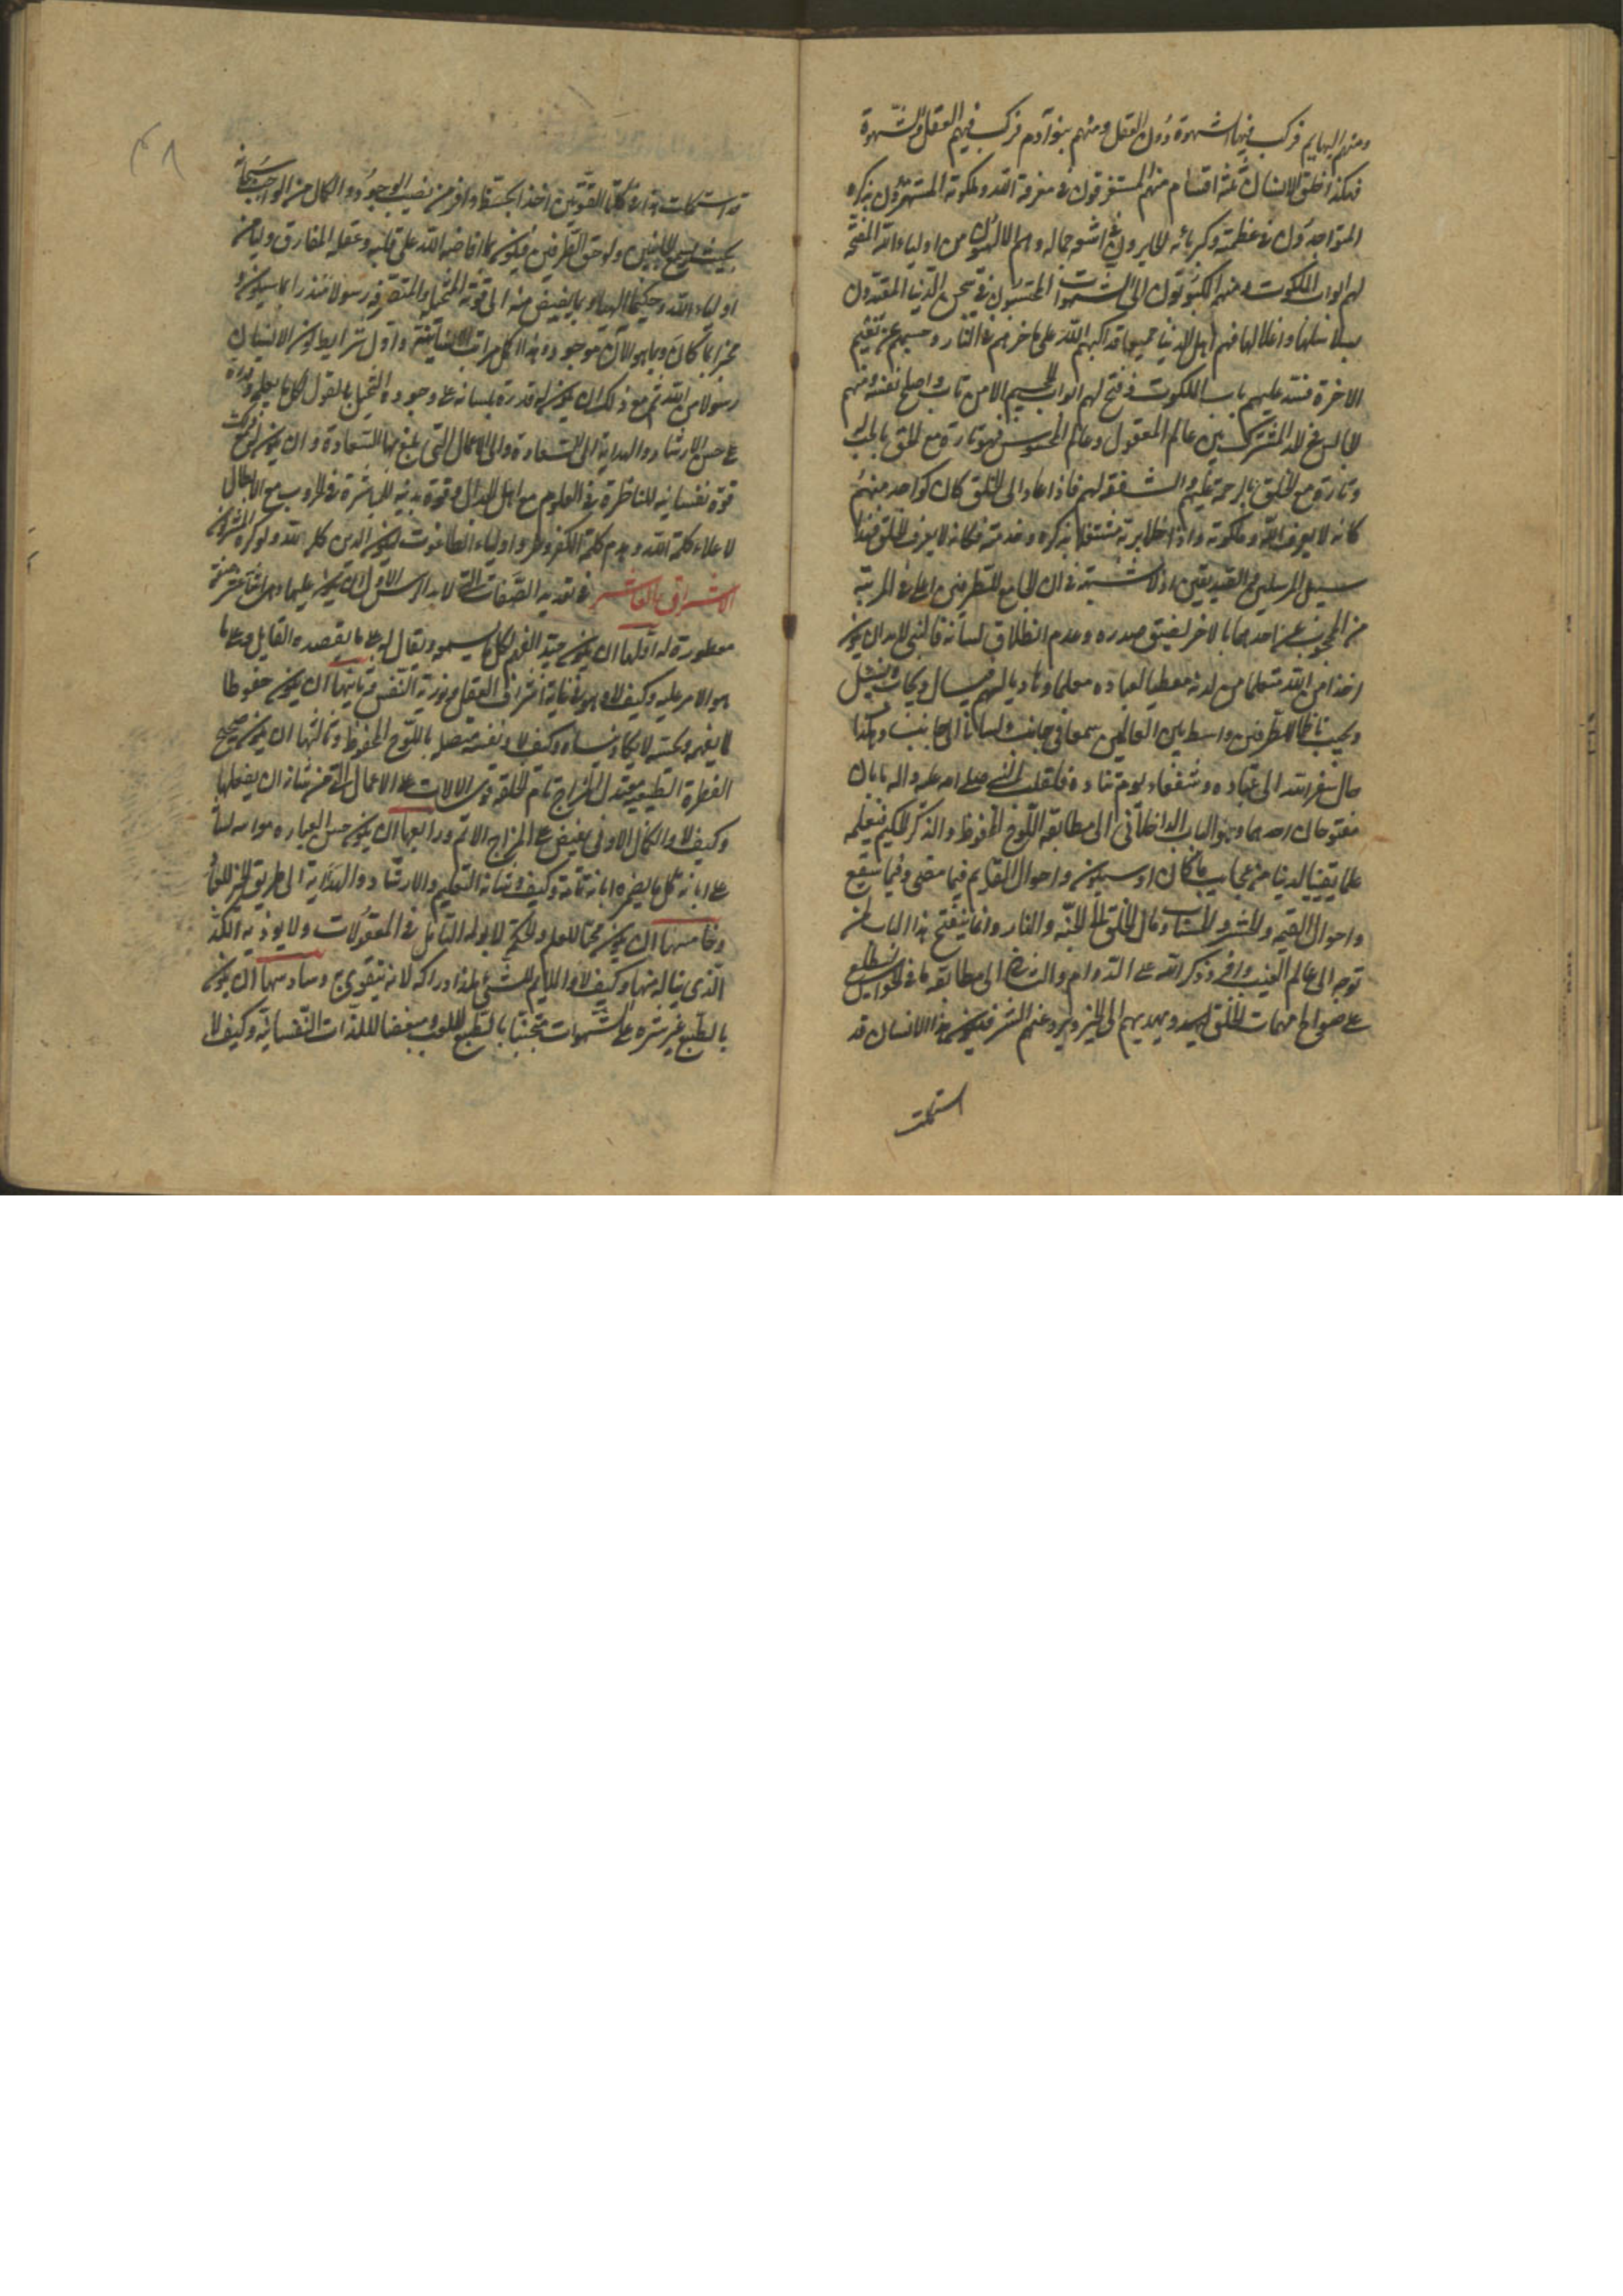 ومنهم البهايم فركب فيها الشهوة دون العقل ومنهم بنو آدم فركب فيهم العقل والشهوة
فهكذا خلق الانسان ثلثة اقسام منهم المستغرقون فى معرفة الله وملكوته المستهترون بذكره
المتواجدون فى عظمته وكبريائه الحايرون فى اشعة جماله وهم الالهيون من اولياء الله المفتحة
لهم ابواب الملكوت ومنهم المكبوبون الى الشهوات المحتبسون فى سجن الدنيا المقيدون
بسلاسلها واغلالها فهم اهل الدنيا جميعا قد اكبهم الله على مناخرهم فى النار وحبسهم عن نعيم
الاخرة فسد عليهم باب الملكوت وفتح لهم ابواب الجحيم الا من تاب واصلح نفسه ومنهم
الجالس فى الحد المشترك بين عالم المعقول وعالم المحسوس فهو تارة مع الحق بالحب له
وتارة مع الخلق بالرحمة عليهم والشفقة لهم فاذا عاد الى الخلق كان كواحد منهم
كانه لا يعرف الله وملكوته واذا خلا بربه مشتغلا بذكره وخدمته فكانه لا يعرف الخلق فهذا
سبيل المرسلين والصديقين اذ لا شبهة فى ان الجامع للطرفين اعلى فى المرتبة
من المحجوب عن احدهما بالاخر لضيق صدره وعدم انطلاق لسانه فالنبى لا بد ان يكون
اخذا من الله متعلما من لدنه معطيا لعباده معلما وهاديا لهم فيسال ويجاب ويسئل
ويجيب ناظما للطرفين واسطة بين العالمين سمعا فى جانب ولسانا الى جانب وهكذا
حال سفراء الله الى عباده وشفعاء يوم تناده فلقلب النبى صلى الله عليه واله بابان
مفتوحان احدهما وهو الباب الداخلانى الى مطالعة اللوح المحفوظ والذكر الحكيم فيعلمه
علما يقينيا لدنيا من عجايب ما كان او سيكون واحوال العالم فيما مضى وفيما سيقع
واحوال القيمة والحشر والحساب ومال الخلق الى الجنة والنار وانما ينفتح هذا الباب لمن
توجه الى عالم الغيب وافرد ذكر الله على الدوام والثانى الى مطالعة ما فى الحواس ليطلع
على سوانح مهمات الخلق ويهديهم الى الخير ويردعهم عن الشر فيكون هذا الانسان قد
استكملت
قد استكملت ذاته فى كلتا القوتين اخذا بحظ وافر من نصيب الوجود والكمال من الواجب سبحانه
بحيث يسع الجانبين ويوفى حق الطرفين فيكون بما افاضه الله على قلبه وعقله المفارق وليا من
اولياء الله وحكيما الهيا وبما يفيض منه الى قوته المتخيلة والمتصرفة رسولا منذرا بما سيكون و
مخبرا بما كان وبما هو الآن موجود فهذا اكمل مراتب الانسانية واول شرايط كون الانسان
رسولا من الله ثم مع ذلك ان يكون له قدرة بلسانه على جودة التخيل بالقول لكل ما يعلمه وقدرة
على حسن الارشاد والهداية الى السعادة والى الاعمال التى يبلغ بها السعادة وان يكون له مع ذلك
قوة نفسانية للمناظرة فى العلوم مع اهل الجدال وقوة بدنية للمباشرة فى الحروب مع الابطال
لاعلاء كلمة الله وهدم كلمة الكفر وطرد اولياء الطاغوت ليكون الدين كله لله ولو كره المشركون
الاشراق العاشر فى تعديد الصفات التى لا بد للرئيس الاول ان يكون عليها وهى اثنا عشر صفة
مفطورة له اولها ان يكون جيد الفهم لكل ما يسمعه ويقال له على ما يقصده القايل وعلى ما
هو الامر عليه وكيف لا وهو فى غاية اشراق العقل ونورية النفس وثانيها ان يكون حفوظا
لما يفهمه ويحسه لا يكاد ينساه وكيف لا ونفسه متصلة باللوح المحفوظ وثالثها ان يكون صحيح
الفطرة والطبيعة معتدل المزاج تام الخلقة قوى الالات على الاعمال التى من شانه ان يفعلها
وكيف لا والكمال الاوفى يفيض على المزاج الاتم ورابعها ان يكون حسن العبارة يواتيه لسانه
على ابانة كل ما يضمره ابانة تامة وكيف لا وشانه التعليم والارشاد والهداية الى طريق الخير للعباد
وخامسها ان يكون محبا للعلم والحكمة لا يؤلمه التامل فى المعقولات ولا يوذيه الكد
الذى يناله منها وكيف لا والملايم للشئ يلذ ادراكه لانه يتقوى به وسادسها ان يكون
بالطبع غير شره على الشهوات متجنبا بالطبع للعب مبغضا لللذات النفسانية وكيف لا